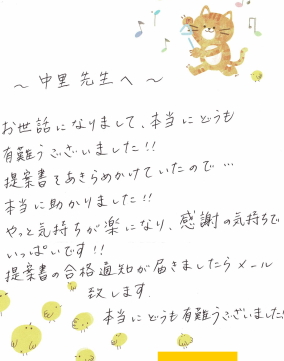 ～ 中里 先生へ ～
お世話になりまして、本当にどうも
有難うございました!!
提案書をあきらめかけていたので…
本当に助かりました!!
やっと気持ちが楽になり、感謝の気持ちで
いっぱいです!!
提案書の合格通知が届きましたらメール
致します.
本当にどうも有難うございました!!